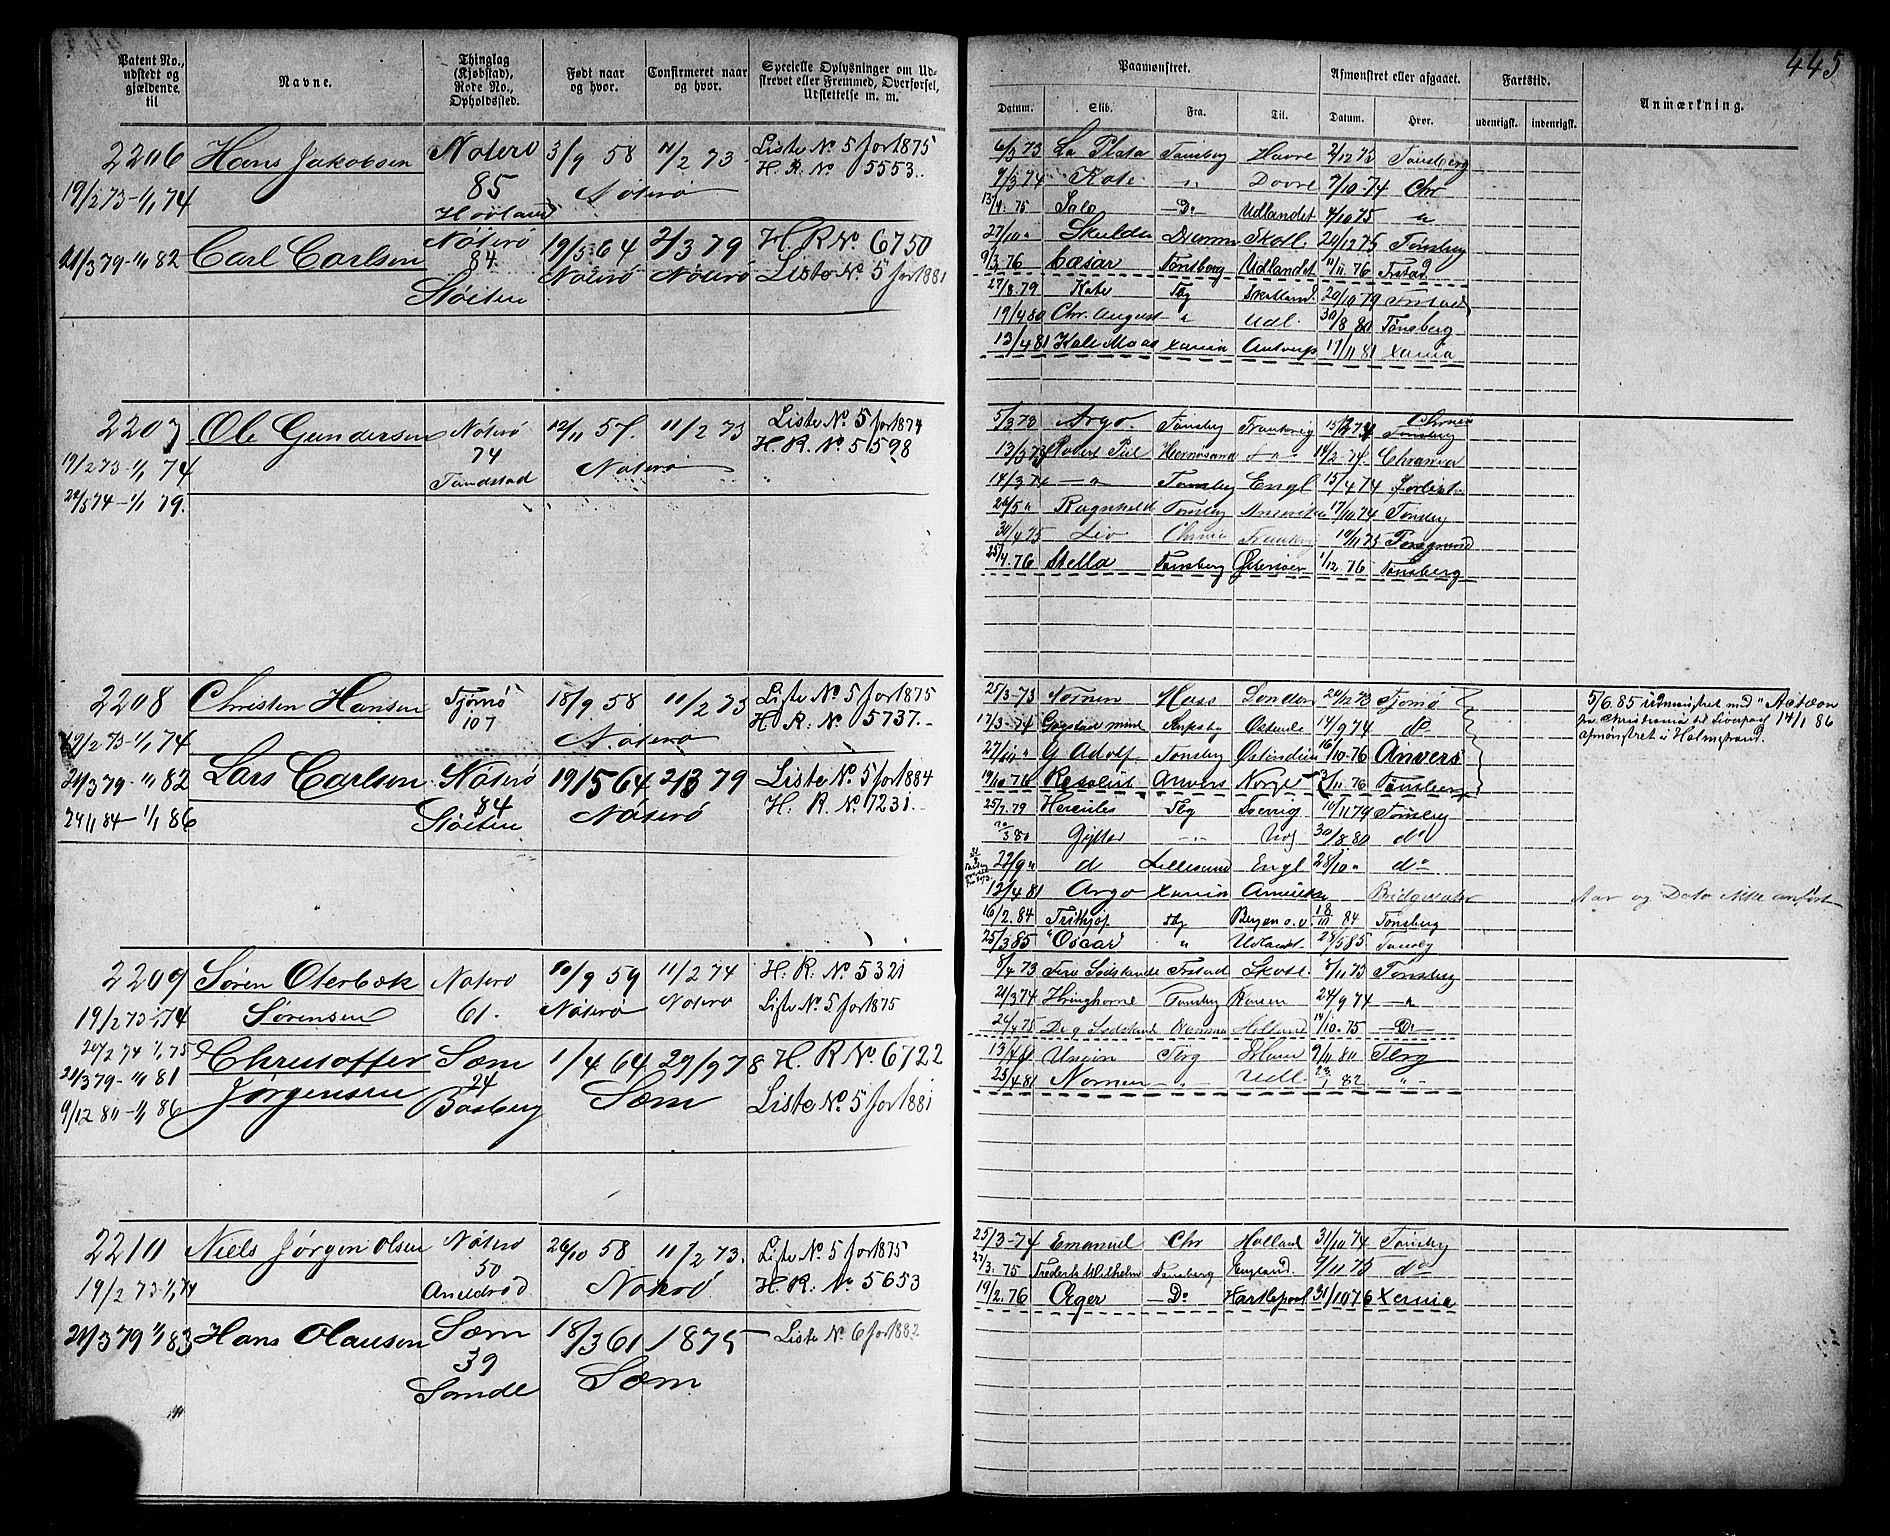 445
Patent No., udstedt og gjældende til
Navne.
Thinglag (Kjøbstad), Rode No., Opholdssted.
Født naar og hvor.
Confirmeret naar og hvor.
Specielle Oplysninger om Udskrevet eller Fremmed, Overførsel, Udslettelse m. m.
Paamønstret.
Afmønstret eller afgaaet.
Fartstid.
Anmærkning.
Datum. Skib. Fra. Til. Datum. Hvor. udenrigsk. indenrigsk.
2206 Hans Jakobsen Nøterø 3/9 58 11/2 73 Liste No 5 for 1875
H. R. No 5553.
19/2 73-1/1 74 85 Nøterø
21/3 79-1/1 82 Carl Carlsen Nøterø 19/5 64 2/3 79 H. R No 6750
84 Nøterø Nøterø Liste No 5 for 1881
Støiten
6/3 73 La Plata Tønsberg Havre 2/12 73 Tønsberg
9/3 74 Kate " Dovre 7/10-74 Chr
13/4. 75 Salo -Do Udlandet 4/10 75 "
27/10 " Skulda Dramm Skotl. 20/12 75 Tønsberg
9/3. 76 Cæsar Tønsberg Udlandet 11/11. 76 Frstad
27/8. 79 Kate Tbg Skotland. 20/10 79 Frstad
19/4 80 Chr. August " Udl. 30/8 80 Tønsberg
13/4 81 Xania Antverp 17/11 81 Xania
2207 Ole Gundersen Nøterø 12/11 57. 11/2 73 Liste No 5 for 1874
H. R. No 5598
19/2 73-1/1 74 74 Nøterø
1/1 79.
5/3 73 Argo. Tønsberg Frankrig Tønsberg
13/3 73 Hernøsand 14/2. 74.
14/3 74 -"- Tønsberg Engl 15/4 74
26/5 " Ragnhild Tønsberg 17/10 74 Tønsberg
30/4 75 Liv 10/11 75 Porsgrund
25/4. 76 Stella Tønsberg 1/12. 76 Tønsberg
2208 Christen Hansen Tjømø 18/9 58 11/2 73 Liste No 5 for 1875
107 H. R. No 5737.
19/2 73-1/1 74 Nøterø
21/3 79-1/1 82 Lars Carlsen Nøterø 19/5 64 2/3 79 Liste No 5 for 1884
84 H. R. No 7231.
24/11 84-1/1 86 Støiten Nøterø
25/3-73 Nornen London Tjømø
17/3-74 Ostende 14/9 74 do
27/10 " G Adolf Tønsberg Ostindien 16/10-76 Anvers
19/10 76 Resolut Anvers Norge 3/11 76 Tønsberg
25/7. 79 Hercules Tbg Sverrig 10/11 79 Tønsberg
Udl 30/8. 80 do
22/9 " d Lillesand Engl 28/10 " do
13/4 81 Argo Xania Bridgewater
16/2. 84 Frithjof Tbg Bergen o. v. 84 Tønsberg
25/3 85 "Oscar" " Udlandet 28/5 85 Tønsberg
5/6. 85 udmønstret med "Actæon
fra Christiania til 14/1 86
afmønstret i Holmestrand.
Aar og Dato ikke anført
2209 Søren Oterbæk Nøterø 10/9 59 11/2 74 H. R. No 5321
19/2 73-1/1 74 Sørensen 61. Nøterø Nøterø Liste No 5 for 1875
20/2 74 1/1 75 Christoffer Sæm 1/4 64 29/9 78 H. R No. 6722
21/3 79-1/1 81 Jørgensen 24
9/12 80-1/1 86 Basberg Sæm Liste No 5 for 1881
8/4 73 Frstad Skotl. 8/11 73 Tønsberg
21/3 74 Hringhorne Tønsberg 24/9 74 -"
Holland 14/10. 75 -Do-
Union Tbrg 9/11 80 Tbrg
25/4 81 Nornen -"- Udl. "
2210 Niels Jørgen Olsen Nøterø 26/10 58 11/2 73. Liste No. 5 for 1875
50 H. R. No 5653
19/2 73-1/1 74 Nøterø
21/3 79 1/1 83 Hans Olausen Sæm 18/3 61 1875 Liste No. 6 for 1882
39
Sande Sæm
25/3-74 Emanuel Chr Holland 31/10 74 Tønsberg
27/3. 75 Frederk Wilhelm Tønsberg England. 9/11 75 do
19/2. 76 Ørger -Do Hartlepool 31/10 76 Xania